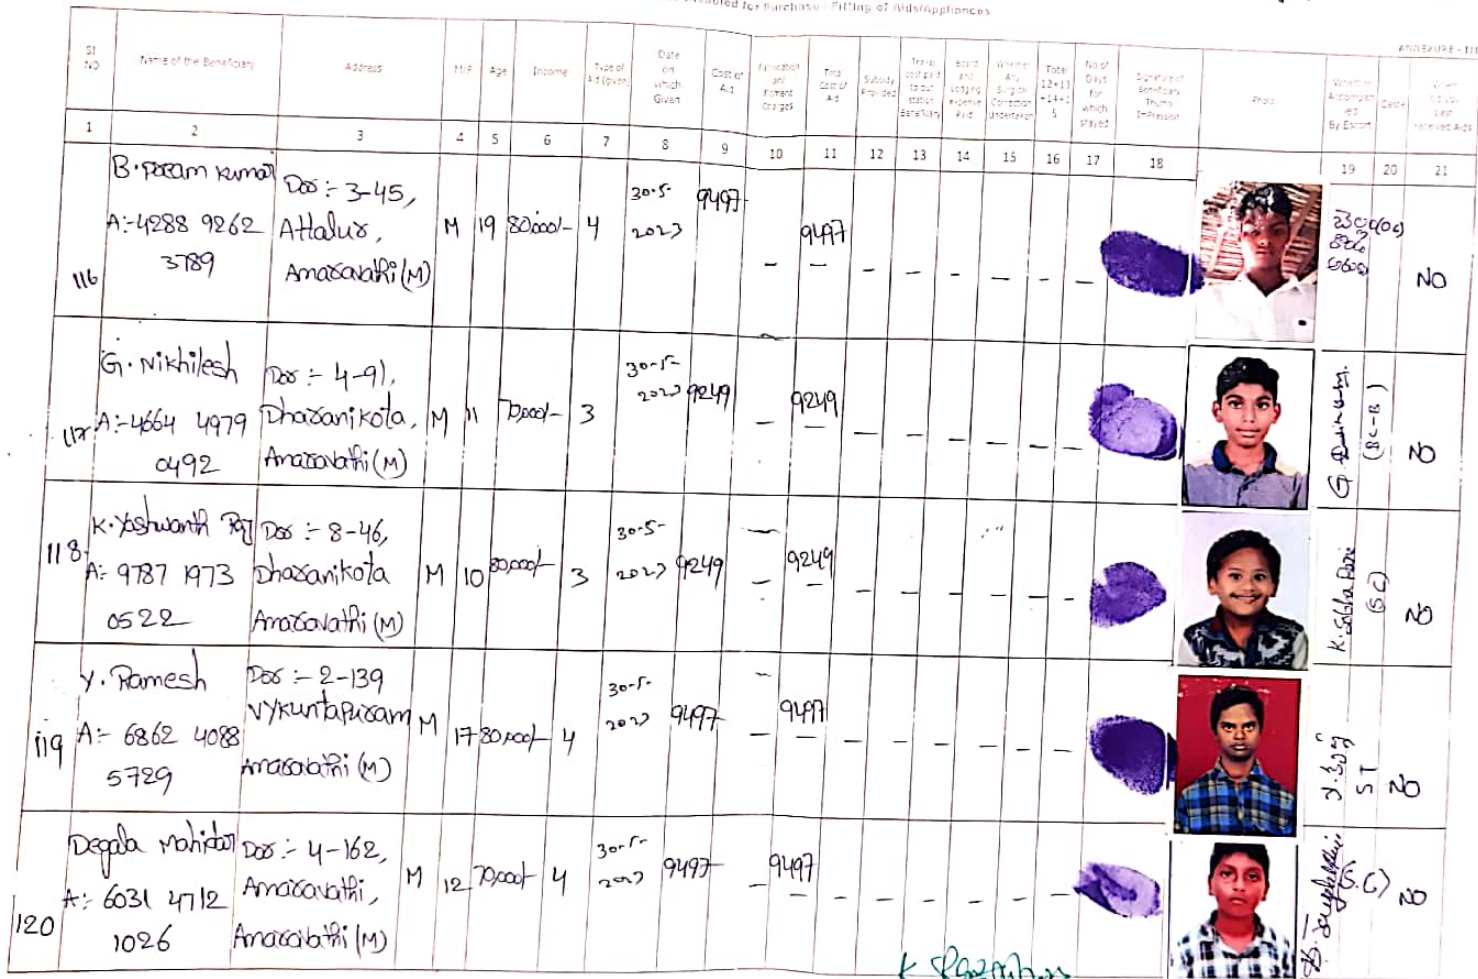 Disabled for Purchase / Fitting of Aids/Appliances
ANNEXURE - III
Sl NO
Name of the Beneficiary
Address
M/F
Age
Income
Type of Aid (given)
Date on which Given
Cost of Aid
Fabrication and Fitment Charges
Total Cost of Aid
Subsidy Provided
Travel cost paid to out station Beneficiary
Board and Lodging expense Paid
Whether Any Surgical Correction Undertaken
Total 12+13+14+15
No.of Days for which stayed
Signature of Beneficiary Thumb Impression
Photo
Whether Accompanied By Escort
Caste
received Aids
1 2 3 4 5 6 7 8 9 10 11 12 13 14 15 16 17 18 19 20 21
116
B.
A:-4288 9262
3789
Dor :- 3-45,
Attalur,
Amaravathi (M)
M 19 80,000/- 4
30-5-
2023
9497
- 9497 - - - - - - -
NO
117
G. Nikhilesh
A:-4664 4979
0492
Dor :- 4-91,
Dharanikota,
Amaravathi (M)
M 11 70,000/- 3
30-5-
2023
9249
- 9249 - - - - - -
G.
(BC-B)
NO
118
K. Yashwanth Raj
A:- 9787 1973
0522
Dor :- 8-46,
Dharanikota
Amaravathi (M)
M 10 80,000/- 3
30-5-
2023
9249
- 9249 - - - - - -
K. Subba Rao
(SC)
NO
119
Y. Ramesh
A:- 6862 4088
5729
Dor :- 2-139
Vykuntapuram
Amaravathi (M)
M 17 80,000/- 4
30-5-
2023
9497
- 9497 - - - - - -
ST
NO
120
Degala Mahidar
A:- 6031 4712
1026
Dor :- 4-162,
Amaravathi,
Amaravathi (M)
M 12 70,000/- 4
30-5-
2023
9497
- 9497 - - - - - -
(S.C)
NO
K